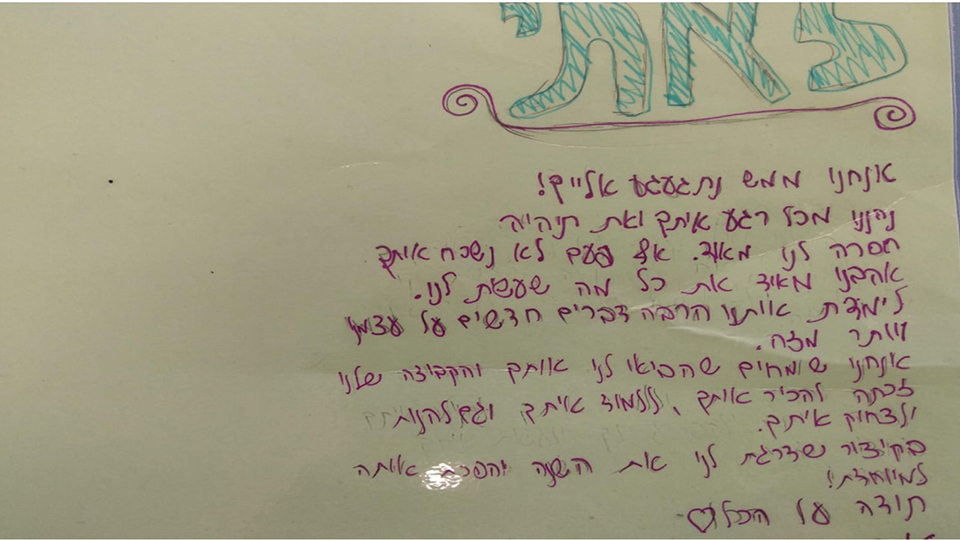 אנחנו ממש נתגעגע אלייך!
נהננו מכל רגע איתך ואת תיהיה
חסרה לנו מאוד. אף פעם לא נשכח איתך.
אהבנו מאוד את כל מה שעשת לנו.
לימדת אותנו הרבה דברים חדשים על עצמנו
ויותר מזה.
אנחנו שומחים שהביאו לנו אותך והקבוצה שלנו
זכתה להכיר אותך, ללמוד איתך וגם להנות
ולצחוק איתך.
בקיצור שדרגת לנו את השנה והפכת אותה
למיוחדת!
תודה על הכל♡